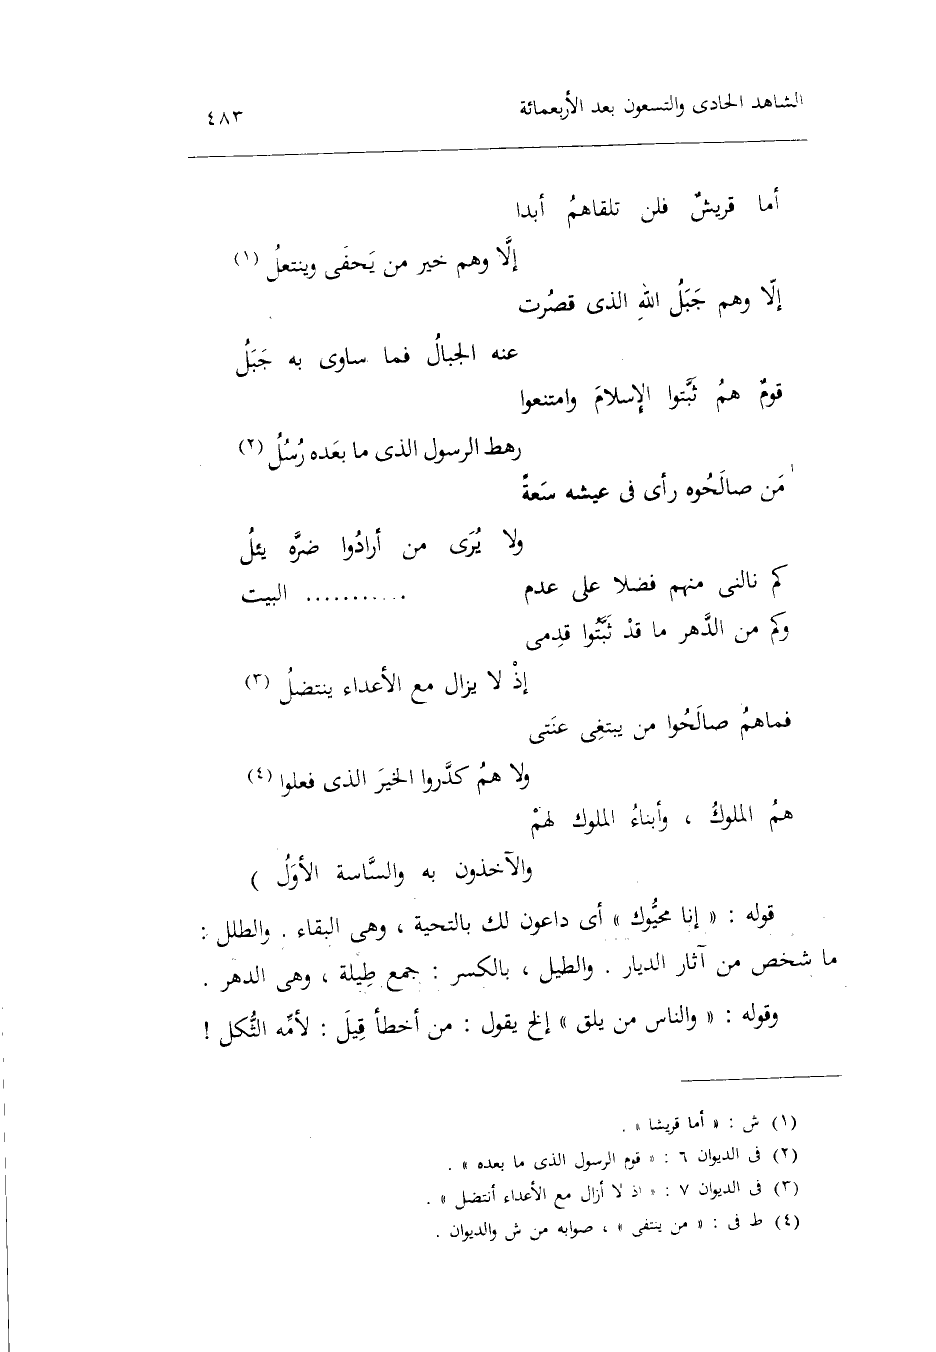 الشاهد الحادى والتسعون بعد الأربعمائة ٤٨٣
أما قريشٌ فلن تلقاهمُ أبدا
إلَّا وهم خير من يَحفَى وينتعلُ (١)
إلّا وهم جَبَلُ اللهِ الذى قصُرت
عنه الجبالُ فما ساوى به جَبَلُ
قومٌ همُ ثبَّتوا الإسلامَ وامتنعوا
رهط الرسول الذى ما بعَده رُسُلُ (٢)
مَن صالَحُوه رأى فى عيشه سَعةً
ولا يُرَى من أرادُوا ضرَّه يئلُ
كم نالنى منهم فضلا على عدم ........... البيت
وكم من الدَّهر ما قدْ ثبَّتُوا قدِمى
إذْ لا يزال مع الأعداء ينتضلُ (٣)
فماهمُ صالَحُوا من يبتغِى عنَتى
ولا همُ كدَّروا الخيرَ الذى فعلوا (٤)
همُ الملوكُ ، وأبناءُ الملوك لهمْ
والآخذون به والسَّاسة الأوَلُ )
قوله : « إنا محيُّوك » أى داعون لك بالتحية ، وهى البقاء . والطلل :
ما شخص من آثار الديار . والطيل ، بالكسر : جمع طِيلة ، وهى الدهر .
وقوله : « والناس من يلق » إلخ يقول : من أخطأ قِيلَ : لأمِّه الثُّكل !
(١) ش : « أما قريشا » .
(٢) فى الديوان ٦ : « قوم الرسول الذى ما بعده » .
(٣) فى الديوان ٧ : « اذ لا أزال مع الأعداء أنتضل » .
(٤) ط فى : « من ينتفى » ، صوابه من ش والديوان .